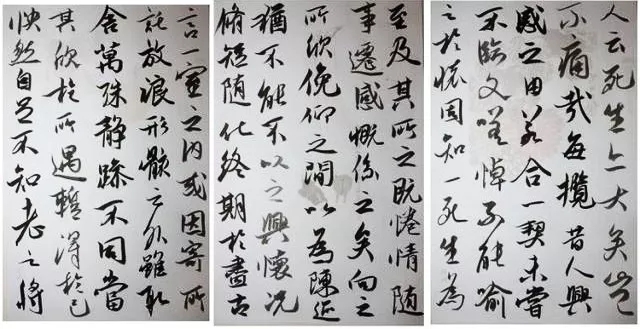 言一室之内或因寄所
託放浪形骸之外雖取
舍萬殊静躁不同當
其欣於所遇暫得於己
怏然自足不知老之將
至及其所之既惓情隨
事遷感慨係之矣向之
所欣俛仰之間以為陳迹
猶不能不以之興懷況
脩短隨化終期於盡古
人云死生亦大矣豈
不痛哉每攬昔人興
感之由若合一契未嘗
不臨文嗟悼不能喻
之於懷固知一死生為